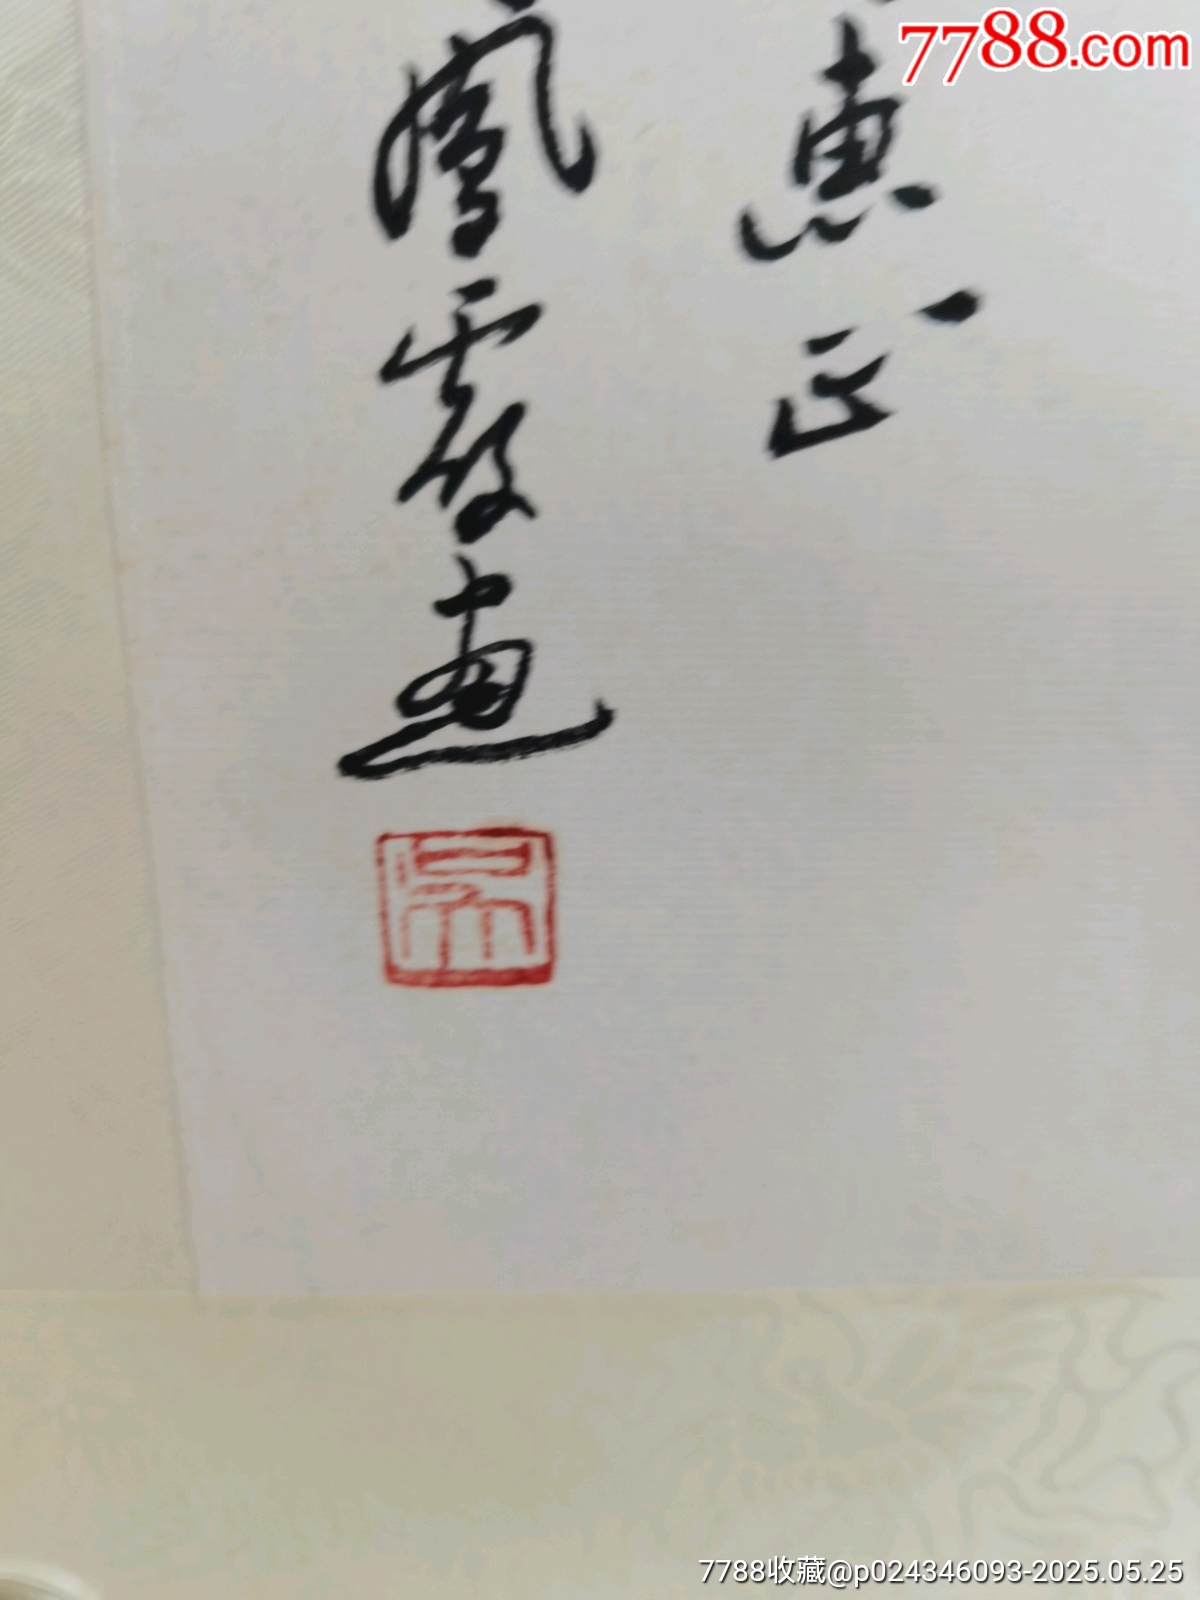 7788.com
惠正
凤霞画
7788收藏@p024346093-2025.05.25